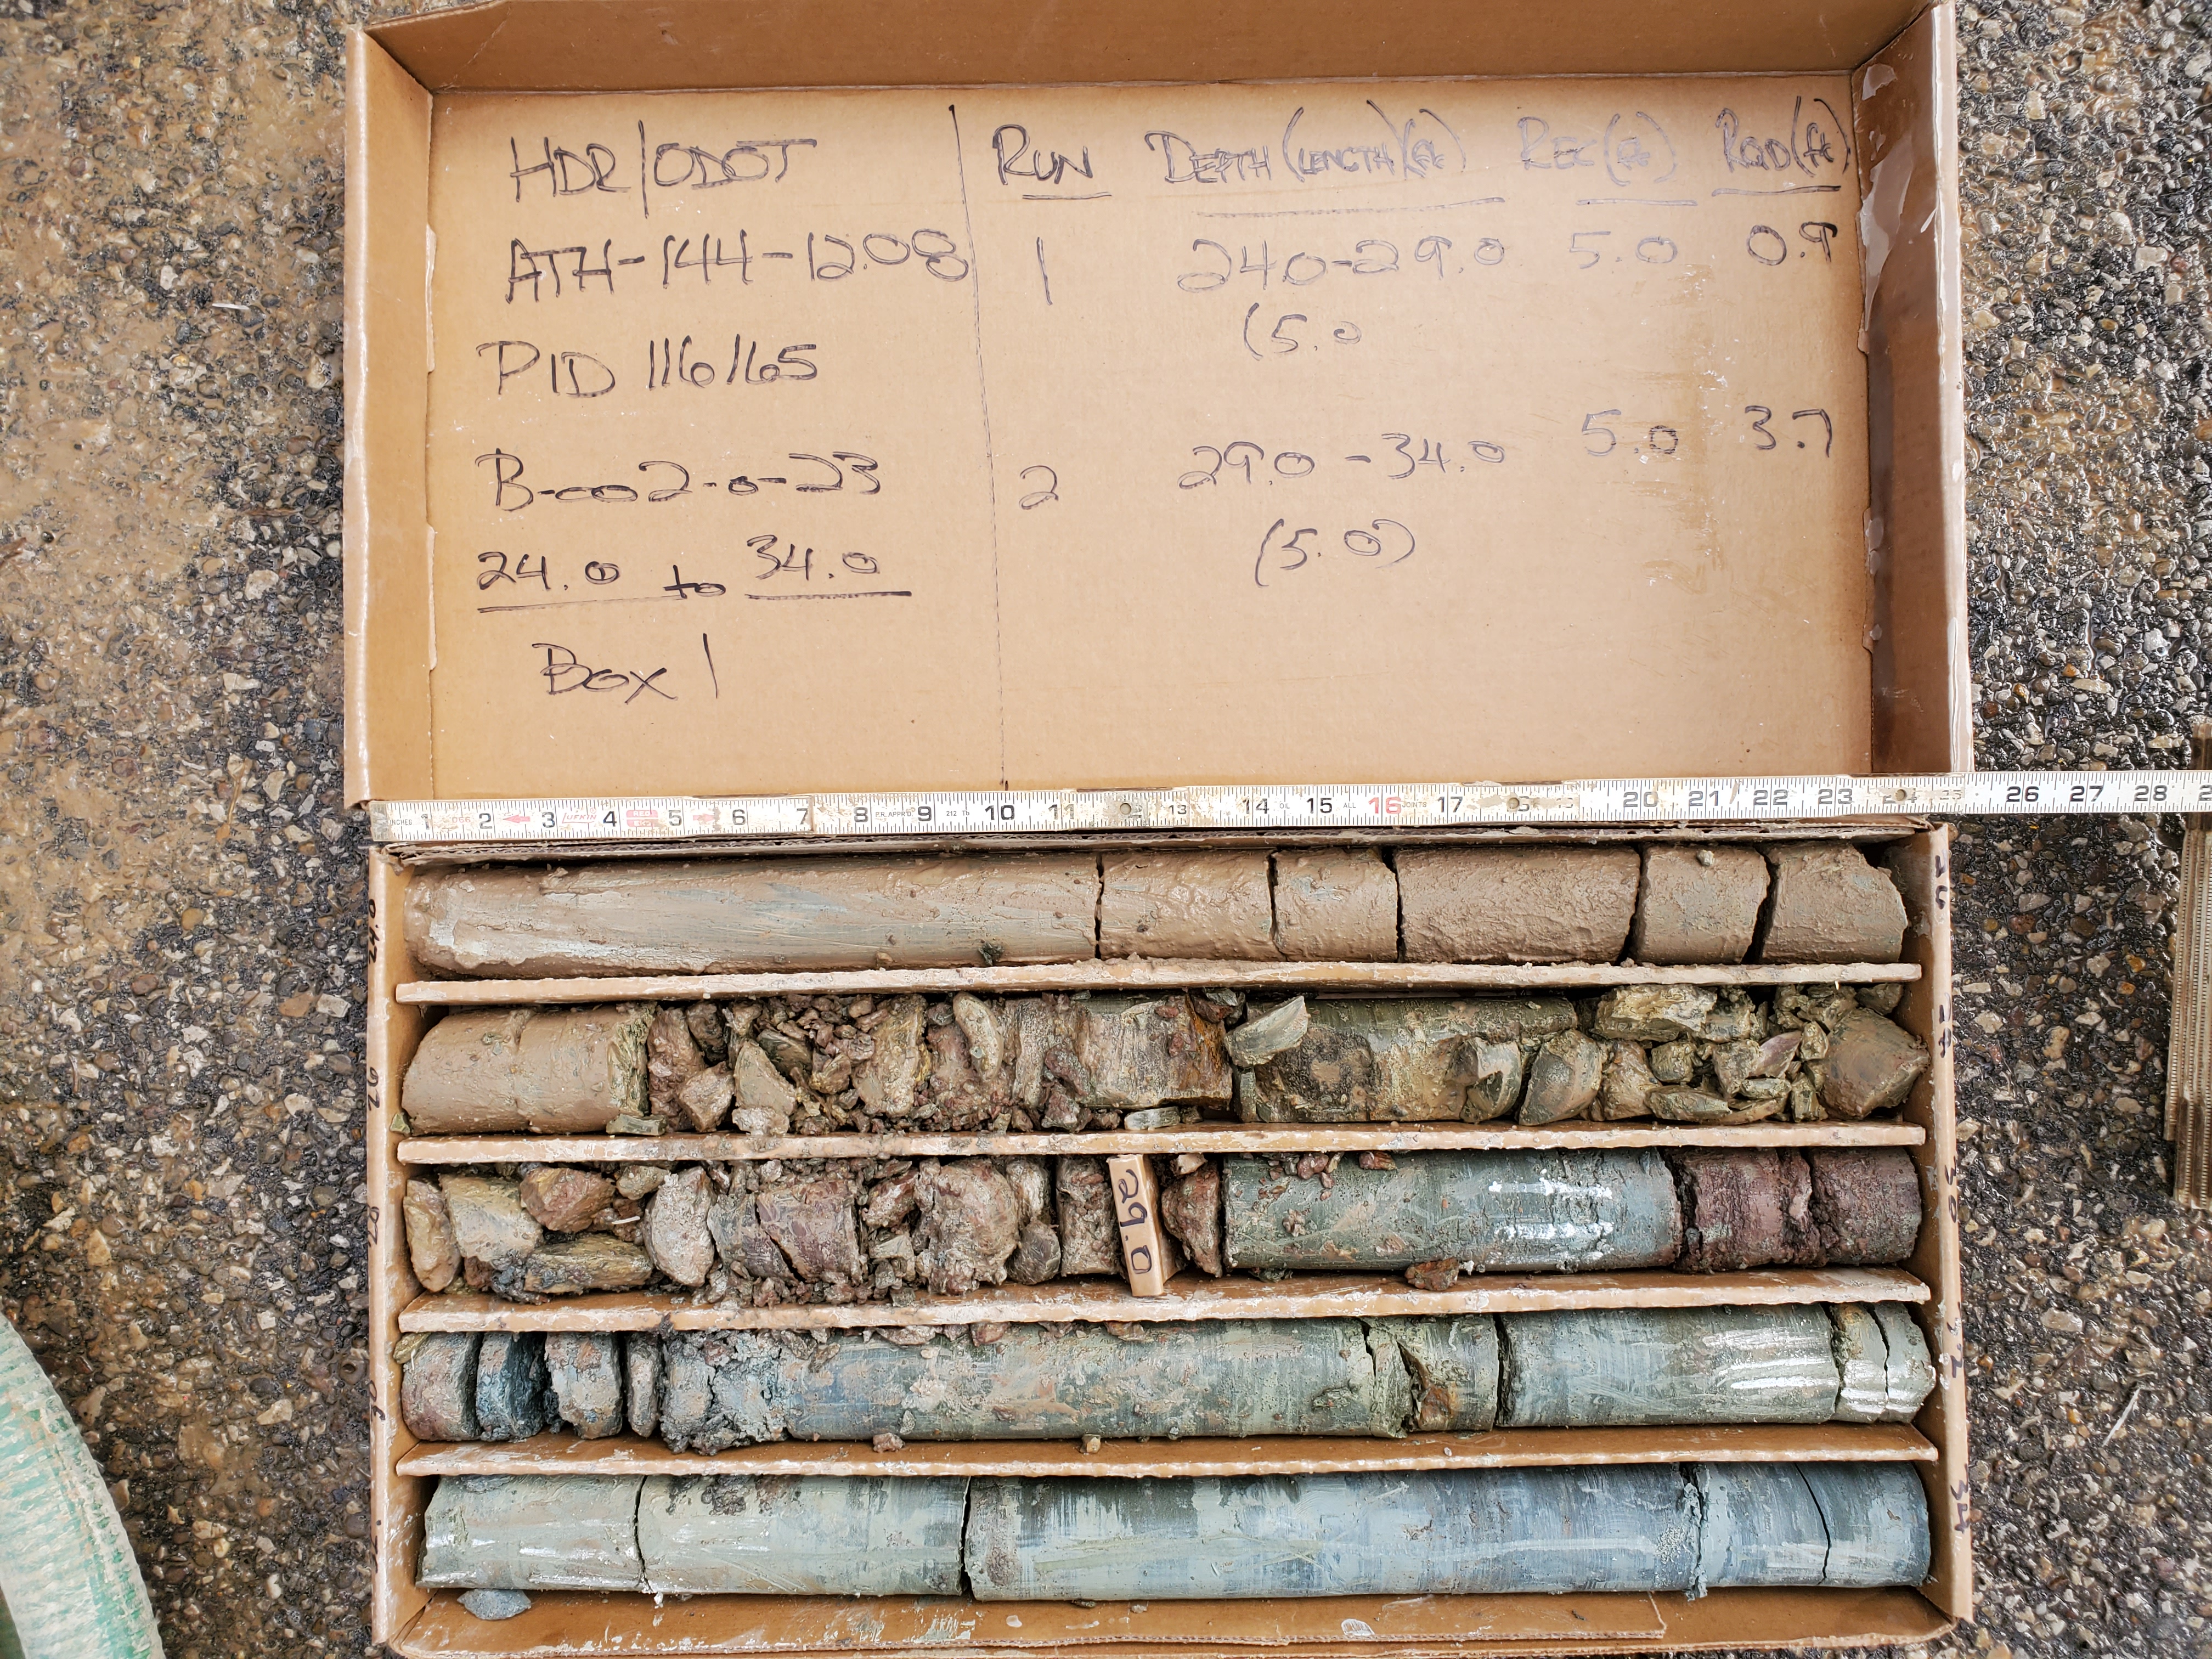 HDR/ODOT
ATH-144-12.08
PID 116165
B-002-0-23
24.0 to 34.0
Box 1
RUN DEPTH (LENGTH)(ft) REC(ft) RQD(ft)
1 24.0-29.0 5.0 0.9
(5.0
2 29.0-34.0 5.0 3.7
(5.0)
1 2 3 4 5 6 7 8 9 10 11 13 14 15 16 17 20 21 22 23 26 27 28
24.0
26
28
29.0
30.0
32
34